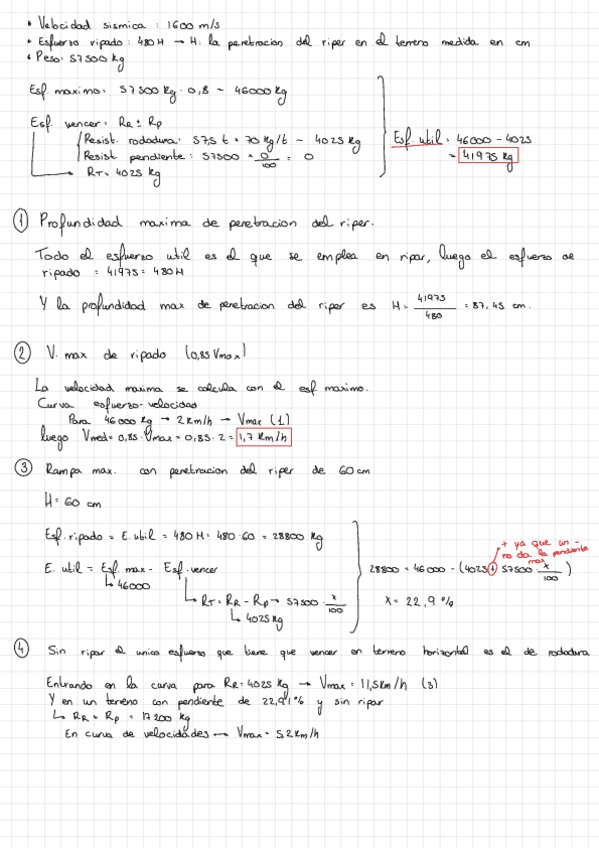 • Velocidad sismica : 1600 m/s
• Esfuerzo ripado : 480 H → H: la penetracion del riper en el terreno medida en cm
• Peso: 57500 kg
Esf. maximo: 57500 kg · 0,8 = 46000 kg
Esf vencer: RR ± Rp
Resist. rododura: 57,5 t × 70 kg/t = 4025 kg
Resist pendiente: 57500 × 0/100 = 0
→ RT = 4025 kg
Esf. util = 46000 - 4025
= 41975 kg
① Profundidad maxima de penetracion del riper.
Todo el esfuerzo util es el que se emplea en ripar, luego el esfuerzo de
ripado = 41975 = 480 H
Y la profundidad max de penetracion del riper es H = 41975/480 = 87,45 cm.
② V. max de ripado (0,85 Vmax)
La velocidad maxima se calcula con el esf. maximo.
Curva esfuerzo-velocidad
Para 46000 kg → 2 km/h → Vmax (1)
luego Vmed = 0,85 · Vmax = 0,85 · 2 = 1,7 km/h
③ Rampa max. con penetracion del riper de 60 cm
H = 60 cm
Esf. ripado = E. util = 480 H = 480 · 60 = 28800 kg
E. util = Esf. max - Esf. vencer
↳ 46000
↳ RT = RR - Rp → 57500 · x/100
↳ 4025 kg
+ ya que un -
no da la pendiente
max
28800 = 46000 - (4025 + 57500 · x/100)
x = 22,9 %
④ Sin ripar el unico esfuerzo que tiene que vencer en terreno horizontal es el de rododura
Entrando en la curva para RR = 4025 kg → Vmax = 11,5 km/h (3)
Y en un terreno con pendiente de 22,91% y sin ripar
↳ RR + Rp = 17200 kg
En curva de velocidades → Vmax = 5,2 km/h